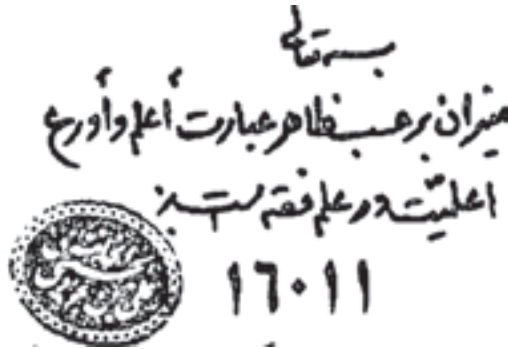 بسمه تعالی
میزان بر حسب ظاهر عبارت أعلم وأورع
اعلمیّت در علم فقه است
١٦٠١١